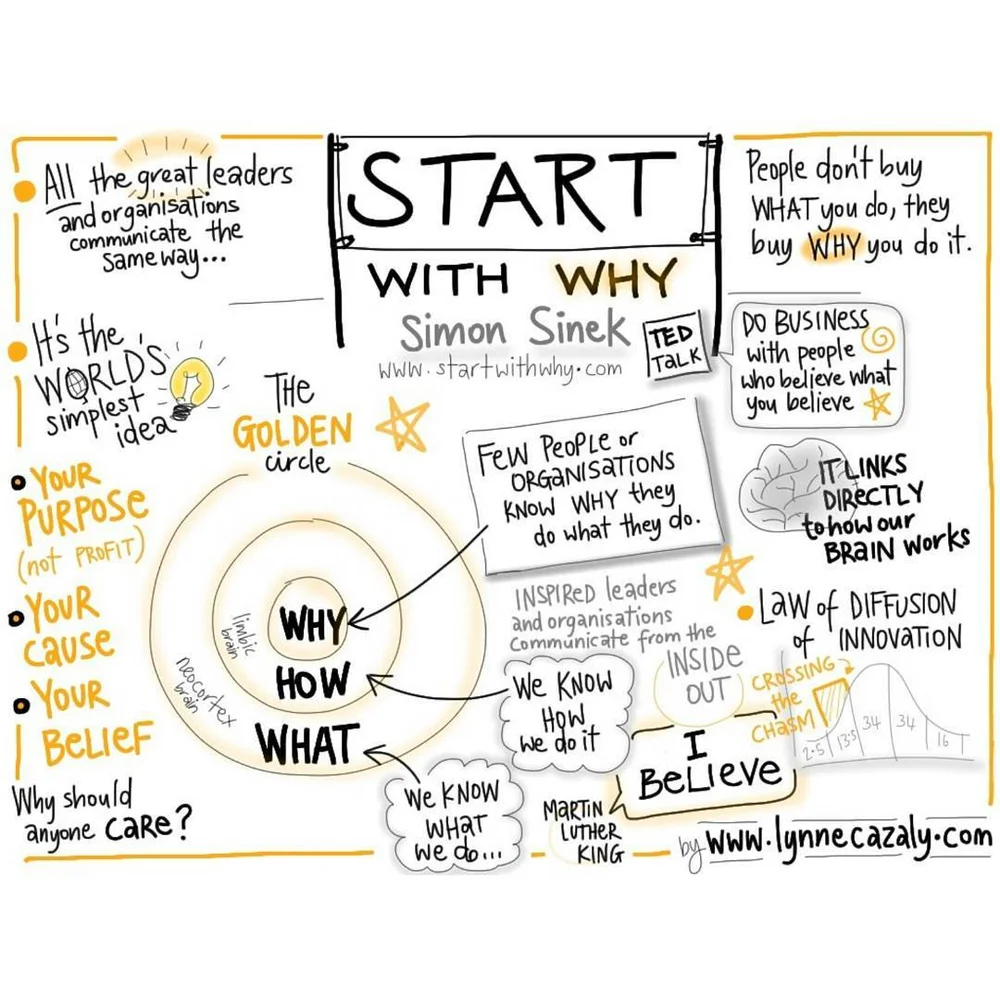 START
WITH WHY
Simon Sinek
www.startwithwhy.com
TED
TALK
All the great leaders
and organisations
communicate the
same way...
It's the
WORLD'S
simplest
idea
YOUR
PURPOSE
(not PROFIT)
YOUR
CAUSE
YOUR
BELIEF
Why should
anyone CARE?
THE
GOLDEN
circle
WHY
limbic
brain
HOW
neocortex
brain
WHAT
FEW PEOPLE or
ORGANISATIONS
KNOW WHY they
do what they do.
INSPIRED leaders
and organisations
communicate from the
INSIDE
OUT
WE KNOW
HOW
we do it
WE KNOW
WHAT
we do...
I
BELIEVE
MARTIN
LUTHER
KING
People don't buy
WHAT you do, they
buy WHY you do it.
DO BUSINESS
with people
who believe what
you believe
IT LINKS
DIRECTLY
to how our
BRAIN works
LAW of DIFFUSION
of INNOVATION
CROSSING
the
CHASM
2.5 13.5 34 34 16
by www.lynnecazaly.com